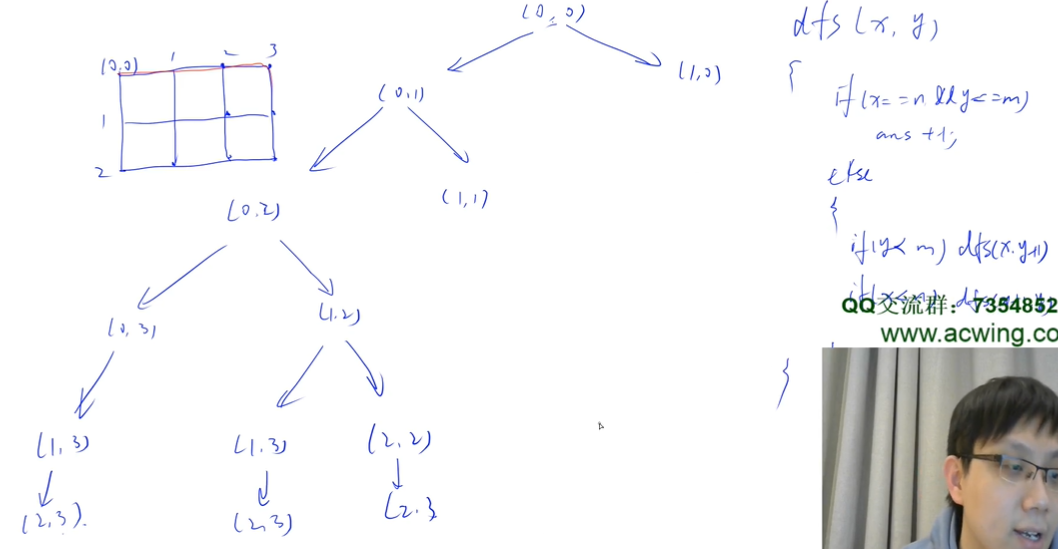 (0,0)
(0,0) 1 2 3
1
2
(0,1)
(1,0)
(0,2)
(1,1)
(0,3)
(1,2)
(1,3)
(1,3)
(2,2)
(2,3).
(2,3)
(2,3
dfs(x,y)
{
if(x==n && y==m)
ans +1;
else
{
if(y<m) dfs(x.y+1)
QQ交流群：7354852
www.acwing.co
}